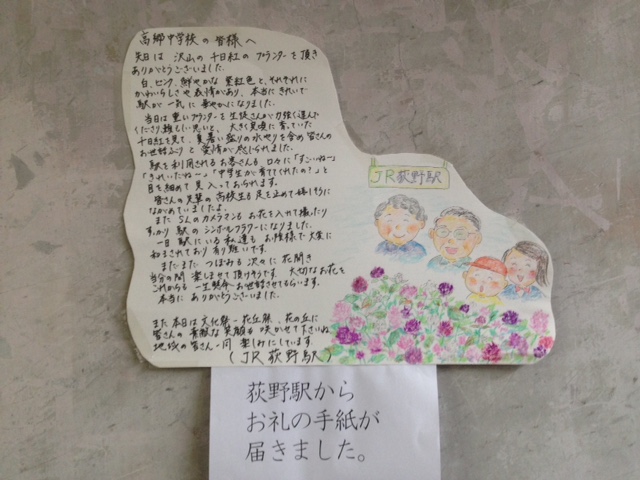 高郷中学校の皆様へ
先日は 沢山の 千日紅の プランターを 頂き
ありがとうございました。
白、ピンク、鮮やかな 紫紅色と、それぞれに
かわいらしさや 表情があり、本当に きれいで
駅が 一気に 華やかになりました。
当日は 重いプランターを 生徒さんが 力強く運んで
くださり、嬉しい思いと、大きく見事に 育っていた
千日紅を見て、夏暑い盛りの水やりを含め皆さんの
お世話ぶりと 愛情が 感じられました。
駅を利用されるお客さんも 口々に「すごいねー」
「きれいだねー」「中学生が育ててくれたの?」と
目を細めて 見入っておられます。
皆さんの先輩の高校生も足を止めて嬉しそうに
ながめていましたよ。
また SLのカメラマンも お花を入れて撮ったり
すっかり 駅の シンボルフラワーになりました。
一日 駅にいる 私達も お陰様で 大変に
和まされており 有り難いです。
まだまだ つぼみも 次々に 花開き
当分の間 楽しませて頂けそうです。大切なお花を
これからも 一生懸命お世話させてもらいます。
本当に ありがとうございました。
また 本日は 文化祭
皆さんの 素敵な 笑顔も 咲かせて下さいね
地域の皆さん一同 楽しみにしています。
(JR荻野駅)
JR荻野駅
荻野駅から
お礼の手紙が
届きました。